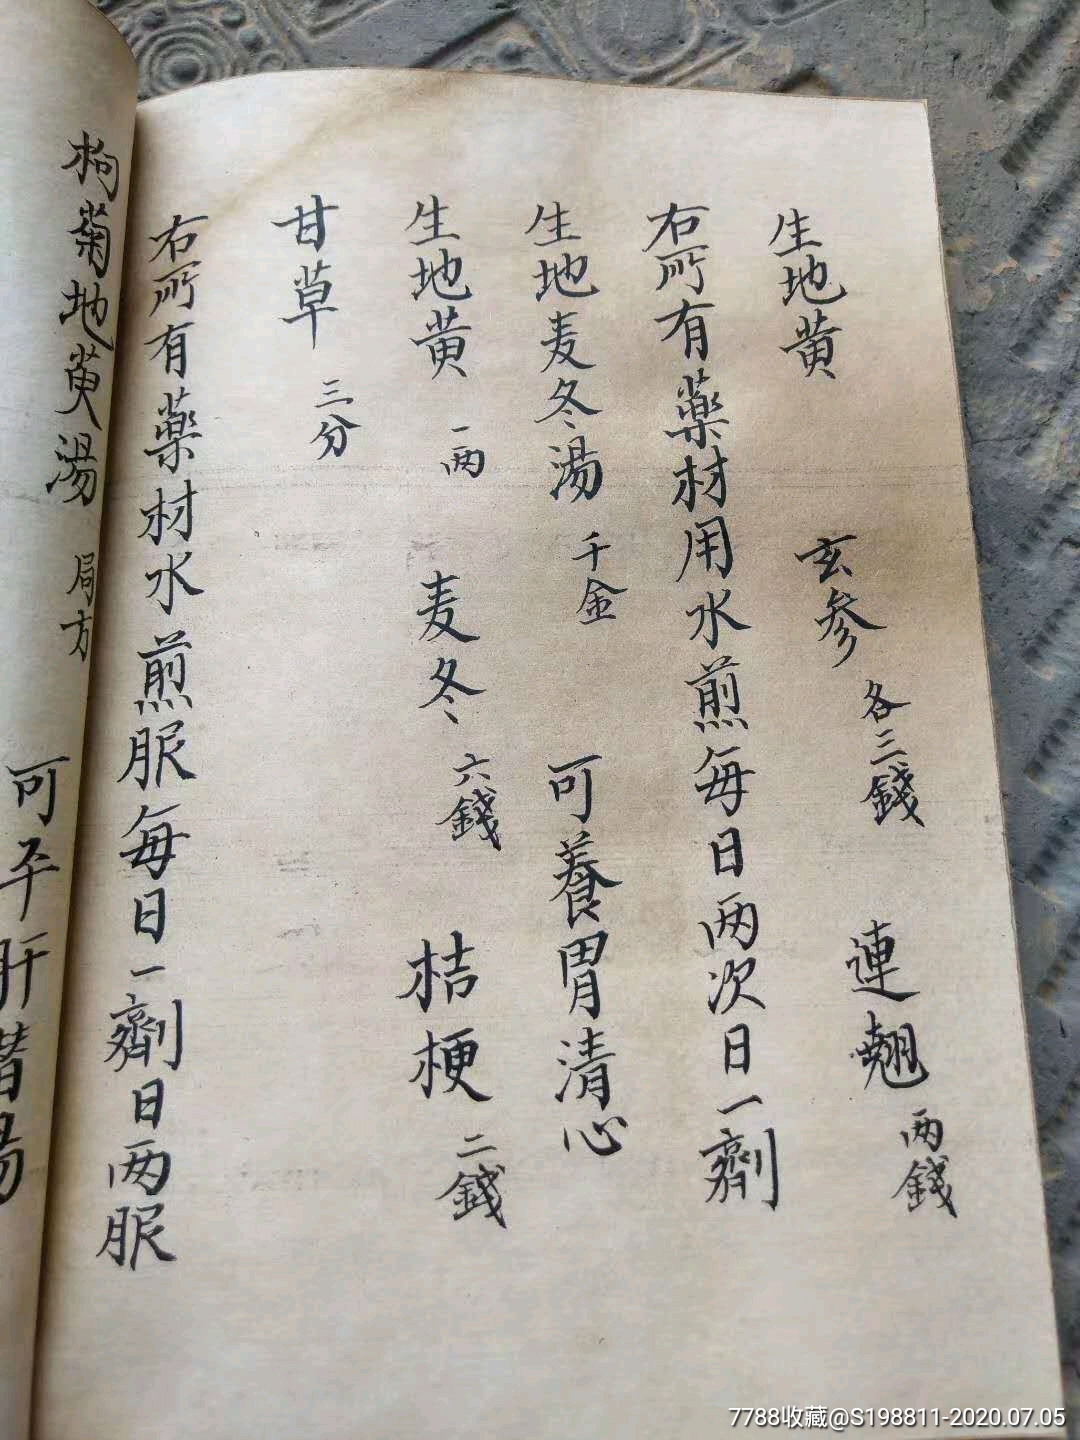 生地黄 玄参 各三錢 連翹 两錢
右所有藥材用水煎每日两次日一劑
生地麦冬湯 千金 可養胃清心
生地黄 一两 麦冬 六錢 桔梗 二錢
甘草 三分
右所有藥材水煎服每日一劑日两服
枸菊地黄湯 局方 可平肝
7788收藏@S198811-2020.07.05